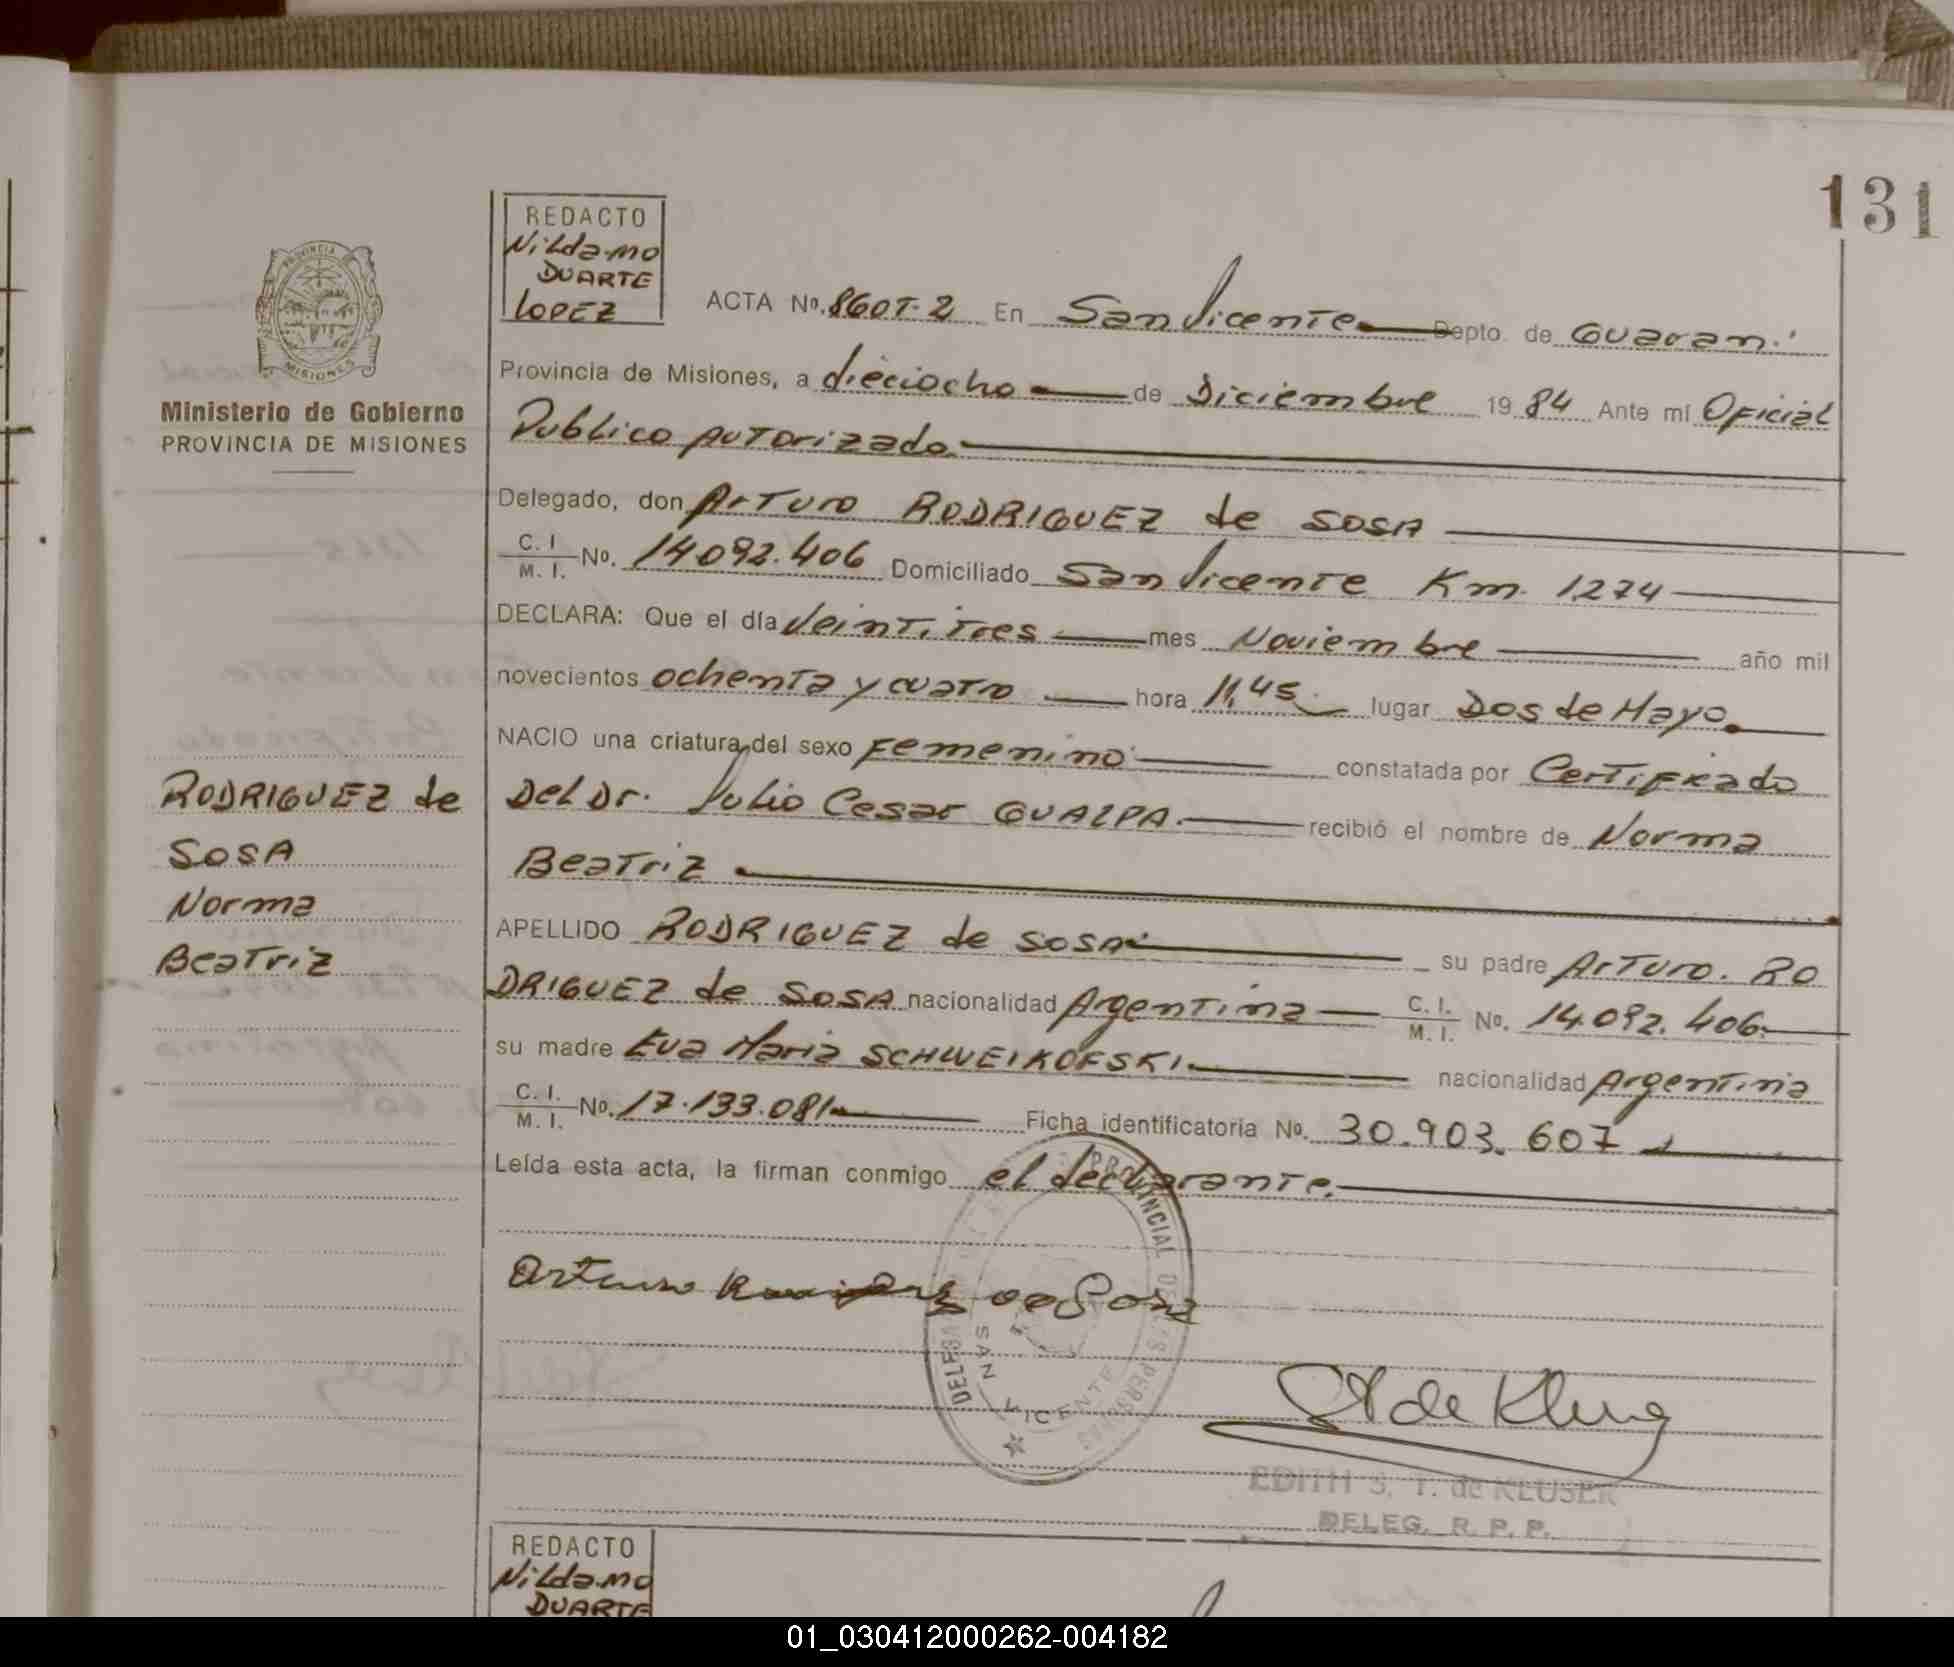 131
REDACTO
Nilda.mo
DUARTE
LOPEZ
PROVINCIA
MISIONES
Ministerio de Gobierno
PROVINCIA DE MISIONES
ACTA No. 860T.2 En San Vicente Depto. de Guarani
Provincia de Misiones, a dieciocho de Diciembre 1984 Ante mí Oficial
Publico Autorizado
Delegado, don Arturo RODRIGUEZ de SOSA
C. I. / M. I. No. 14092.406 Domiciliado San Vicente Km. 1274
DECLARA: Que el día Veintitres mes Noviembre año mil
novecientos ochenta y cuatro hora 11,45 lugar Dos de Mayo.
NACIO una criatura del sexo Femenino constatada por Certificado
Del Dr. Julio Cesar GUALPA. recibió el nombre de Norma
Beatriz
APELLIDO RODRIGUEZ de SOSA su padre Arturo. RO
DRIGUEZ de SOSA nacionalidad Argentina C. I. / M. I. No. 14.092.406.
su madre Eva Maria SCHWEIKOFSKI. nacionalidad Argentina
C. I. / M. I. No. 17.133.081 Ficha identificatoria No. 30.903.607
Leída esta acta, la firman conmigo el declarante.
RODRIGUEZ de
SOSA
Norma
Beatriz
Arturo Rodriguez de Sosa
PROVINCIAL
SAN VICENTE
EDITH S. T. de KLUSER
DELEG. R. P. P.
REDACTO
Nilda.mo
DUARTE
01_030412000262-004182